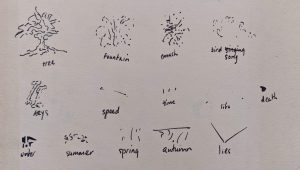 tree fountain bird singing
song
keys speed time life death
summer spring autumn lies